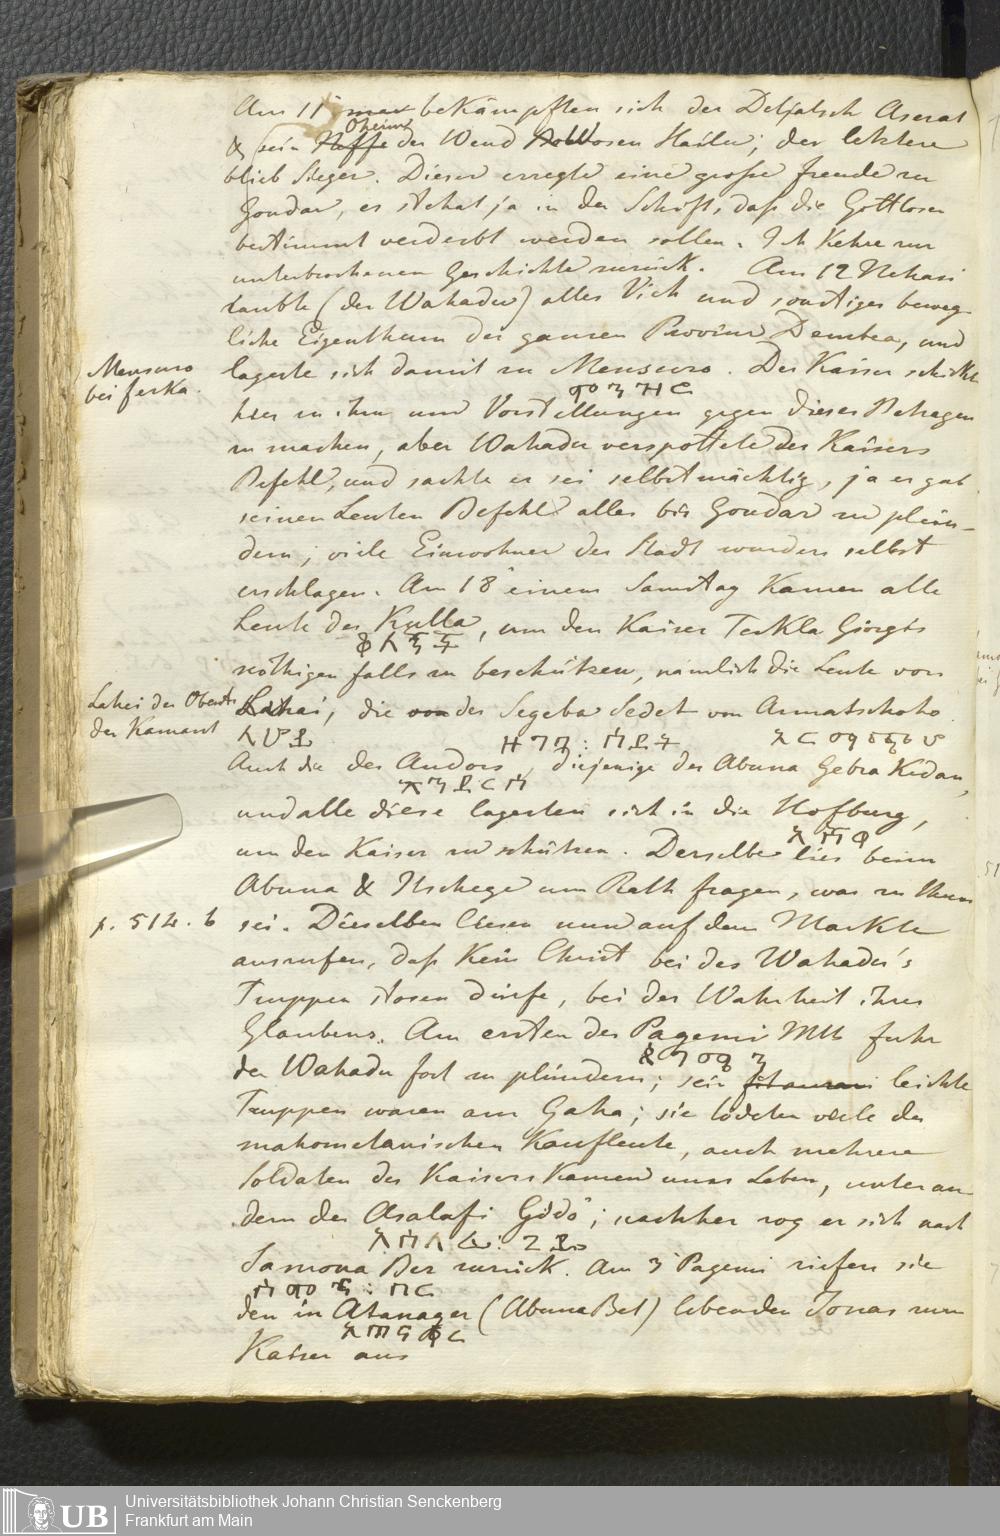 Am 11ᵗ mar bekämpften sich der Detjatsch Aserat
& sein Neffe Oheim der Wend Bowosen Hailu; der letztere
blieb Sieger. Dieser erregte eine große freude zu
Gondar, es stehet ja in der Schrift, daß die Gottlosen
bestimmt verderbt werden sollen. Ich kehre zur
unterbrochenen Geschichte zurück. Am 12 Nehasi
raubte (der Wahadu) alles Vieh und sonstiges beweg
liche Eigenthum der ganzen Provinz Dembea, und
Mensuro
bei ferka.
lagerte sich damit zu Mensuro. Der Kaiser schickte
hier zu ihm um Vorstellungen gegen dieses Betragen
zu machen, aber Wahadu verspottete des Kaisers
Befehl, und sachte er sei selbstmächtig, ja er gab
seinen Leuten Befehl alles bis Gondar zu plün-
dern; viele Einwohner der Stadt wurden selbst
erschlagen. Am 18ᵗ einem Samstag kamen alle
Leute der Kvolla, um den Kaiser Teckla Giorgis
nöthigen falls zu beschützen, nämlich die Leute von
Lahei der Oberste
der Kamant
Lahai, die von der Segeba Sedet von Armatschoho
Auch die des Andors, diejenige des Abuna Gebra Kidan,
und alle diese lagerten sich in die Hofburg,
um den Kaiser zu schützen. Derselbe lies beim
Abuna & Itschege um Rath fragen, was zu thun
p. 514. b
sei. Dieselben liesen nun auf dem Markte
ausrufen, daß kein Christ bei des Wahadu's
Truppen stosen dürfe, bei der Wahrheit ihres
Glaubens. Am ersten des Pagemi Mth fuhr
der Wahadu fort zu plündern; sein fitaurari leichte
Truppen waren am Gaha; sie tödeten viele der
mahometanischen Kaufleute, auch mehrere
Soldaten des Kaisers kamen ums Leben, unter an
dern der Asalafi Gödö; nachher zog er sich nach
Samona Ber zurück. Am 3ᵗ Pagemi riefen sie
den in Atanager (Abuna Bet) lebenden Jonas zum
Kaiser aus
Universitätsbibliothek Johann Christian Senckenberg
Frankfurt am Main
UB